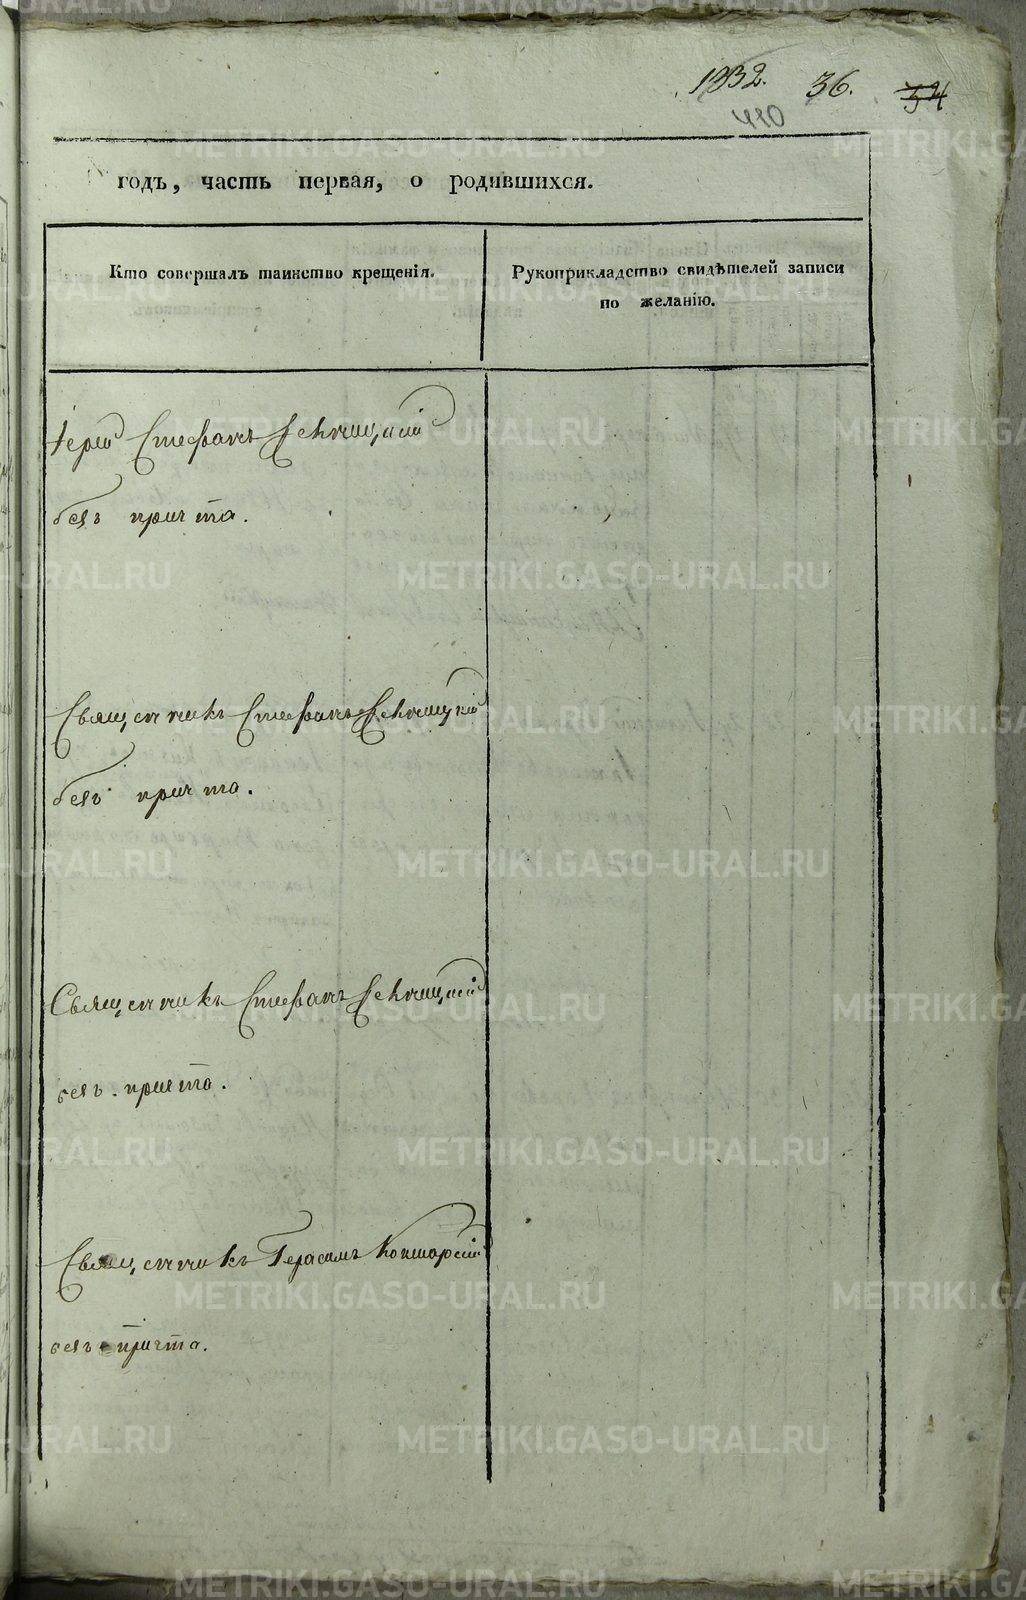 1832. 36. 34
410
годъ, часть первая, о родившихся.
Кто совершалъ таинство крещенія.
Рукоприкладство свидѣтелей записи
по желанію.
Іерей Стефанъ
безъ причта.
Священникъ Стефанъ
безъ причта.
Священникъ Стефанъ
безъ причта.
Священникъ Герасимъ
безъ причта.
METRIKI.GASO-URAL.RU